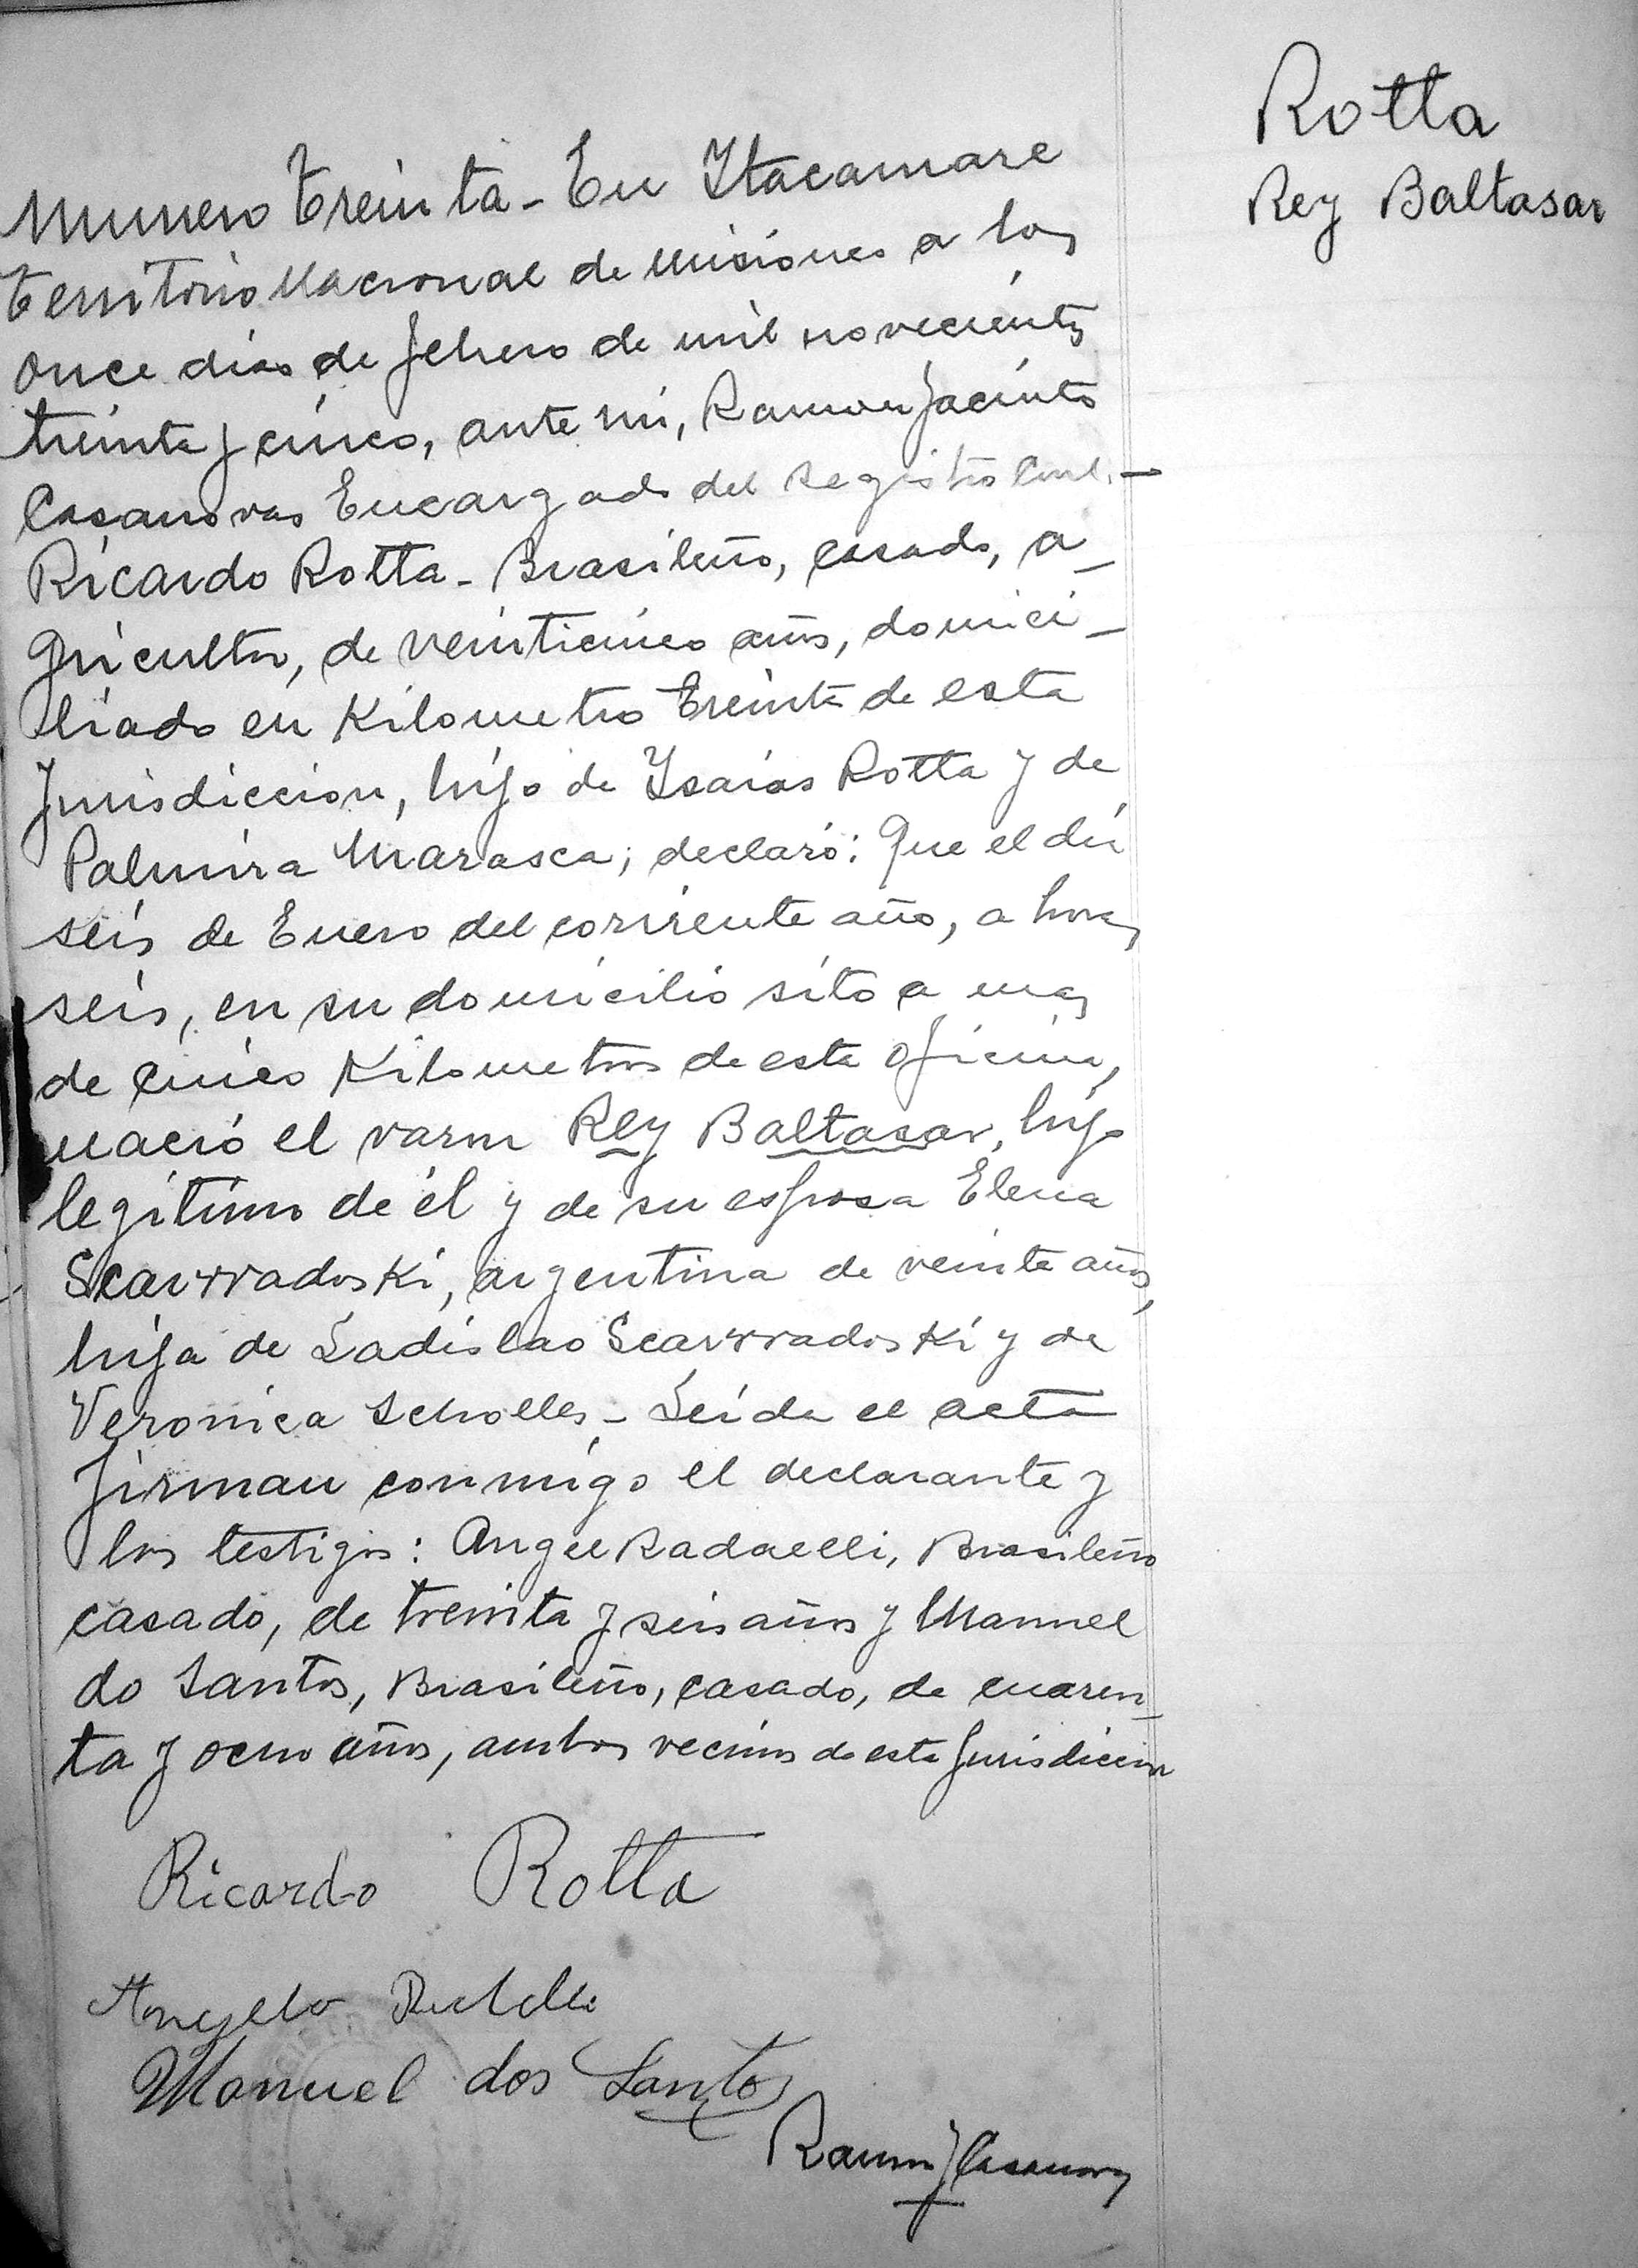 Rotta
Rey Baltasar
Numero treinta - En Itacaruare
territorio Nacional de Misiones a los
once dias de febrero de mil novecientos
treinta y cinco, ante mi, Ramon Jacinto
Casanovas Encargado del Registro Civil. -
Ricardo Rotta - Brasileño, casado, a-
gricultor, de veinticinco años, domici-
liado en Kilometro treinta de esta
Jurisdiccion, hijo de Ysaias Rotta y de
Palmira Marasca; declaró: Que el dia
seis de Enero del corriente año, a horas
seis, en su domicilio sito a mas
de cinco Kilometros de esta oficina,
nació el varon Rey Baltasar, hijo
legitimo de él y de su esposa Elena
Scavrradoski, argentina de veinte años,
hija de Ladislao Scavrradoski y de
Veronica Scholles - Leida el acta
firman conmigo el declarante y
los testigos: Angel Radaelli, Brasileño
casado, de treinta y seis años y Manuel
do Santos, Brasileño, casado, de cuaren-
ta y ocho años, ambos vecinos de esta Jurisdiccion
Ricardo Rotta
Angelo
Manuel dos Santos
Ramon J Casanovas